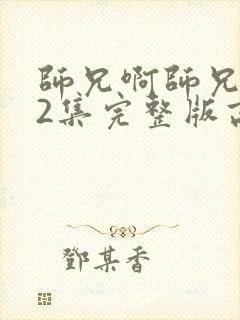 師兄啊師兄
2集完整版
鄧某香